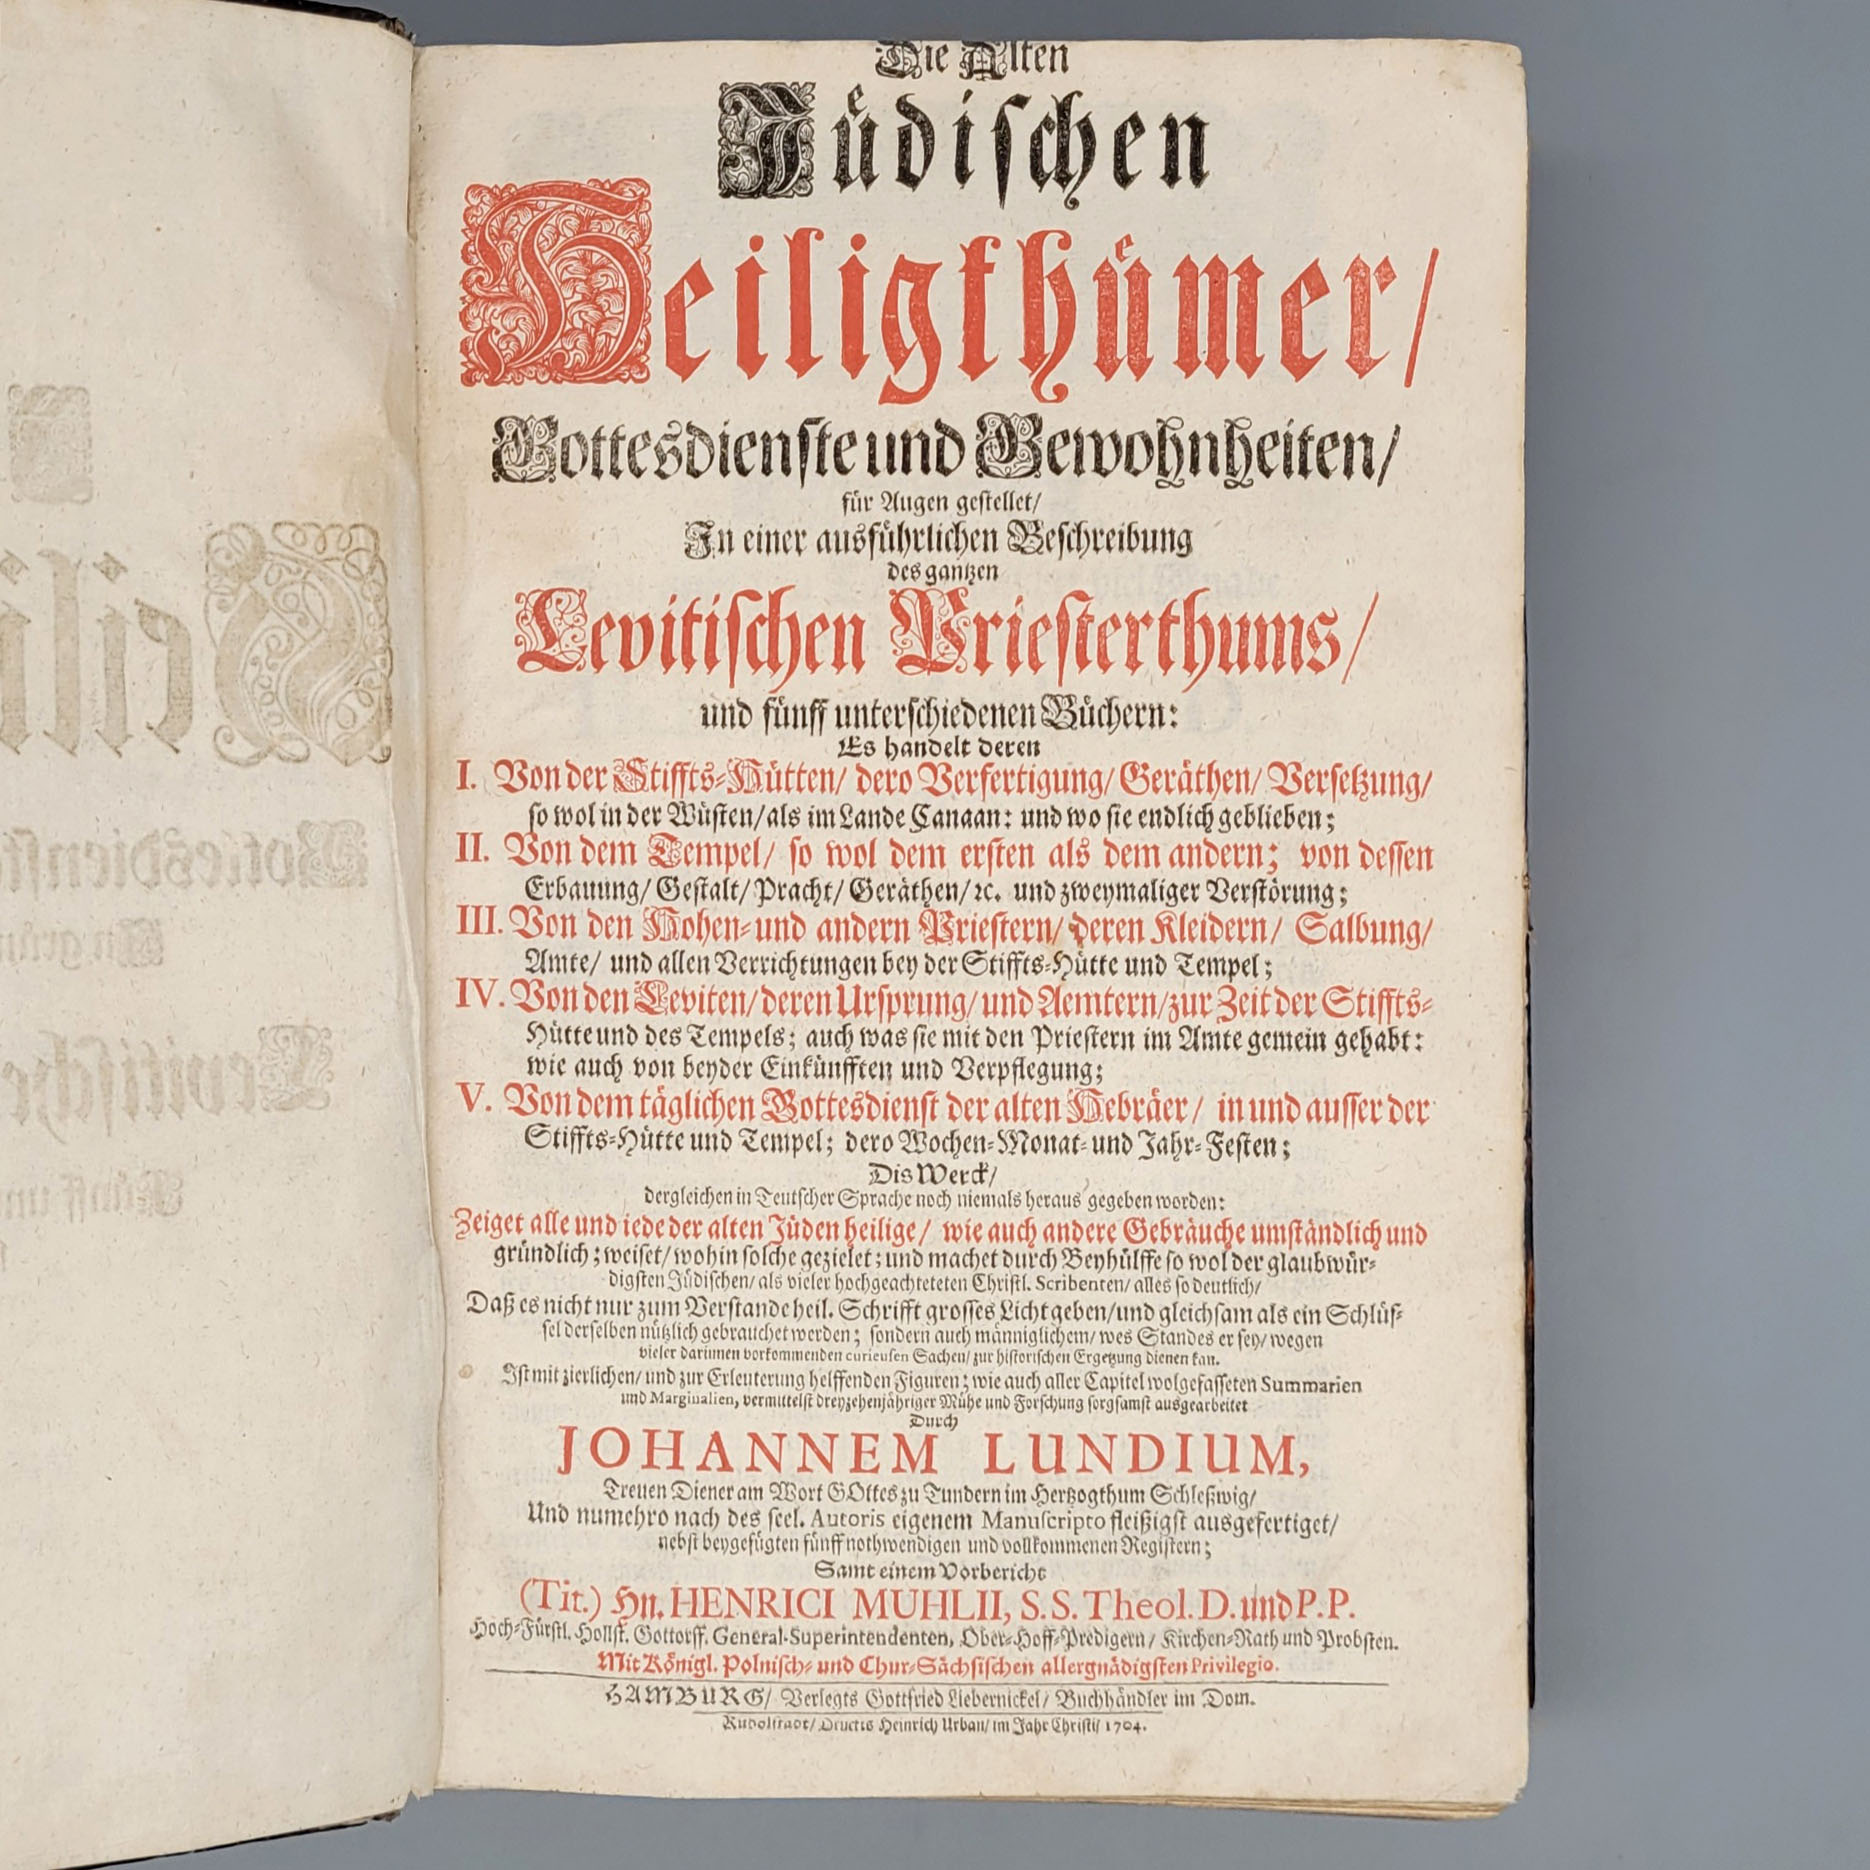 Die Alten
Jüdischen
Heiligthümer/
Gottesdienste und Gewohnheiten/
für Augen gestellet/
In einer ausführlichen Beschreibung
des gantzen
Levitischen Priesterthums/
und fünff unterschiedenen Büchern:
Es handelt deren
I. Von der Stiffts-Hütten/ dero Verfertigung/ Geräthen/ Versetzung/
so wol in der Wüsten/ als im Lande Canaan: und wo sie endlich geblieben;
II. Von dem Tempel/ so wol dem ersten als dem andern; von dessen
Erbauung/ Gestalt/ Pracht/ Geräthen/ ꝛc. und zweymaliger Verstörung;
III. Von den Hohen- und andern Priestern/ deren Kleidern/ Salbung/
Amte/ und allen Verrichtungen bey der Stiffts-Hütte und Tempel;
IV. Von den Leviten/ deren Ursprung/ und Aemtern/ zur Zeit der Stiffts-
Hütte und des Tempels; auch was sie mit den Priestern im Amte gemein gehabt:
wie auch von beyder Einkünfften und Verpflegung;
V. Von dem täglichen Gottesdienst der alten Hebräer/ in und ausser der
Stiffts-Hütte und Tempel; dero Wochen-Monat- und Jahr-Festen;
Dis Werck/
dergleichen in Teutscher Sprache noch niemals heraus gegeben worden:
Zeiget alle und iede der alten Jüden heilige/ wie auch andere Gebräuche umständlich und
gründlich; weiset/ wohin solche gezielet; und machet durch Beyhülffe so wol der glaubwür-
digsten Jüdischen/ als vieler hochgeachteteten Christl. Scribenten/ alles so deutlich/
Daß es nicht nur zum Verstande heil. Schrifft grosses Licht geben/ und gleichsam als ein Schlüs-
sel derselben nützlich gebrauchet werden; sondern auch männiglichem/ wes Standes er sey/ wegen
vieler darinnen vorkommenden curieusen Sachen/ zur historischen Ergetzung dienen kan.
Ist mit zierlichen/ und zur Erleuterung helffenden Figuren; wie auch aller Capitel wolgefasseten Summarien
und Marginalien, vermittelst dreyzehenjähriger Mühe und Forschung sorgsamst ausgearbeitet
Durch
JOHANNEM LUNDIUM,
Treuen Diener am Wort GOttes zu Tundern im Hertzogthum Schleßwig/
Und numehro nach des seel. Autoris eigenem Manuscripto fleißigst ausgefertiget/
nebst beygefügten fünff nothwendigen und vollkommenen Registern;
Samt einem Vorbericht
(Tit.) Hn. HENRICI MUHLII, S.S. Theol. D. und P.P.
Hoch-Fürstl. Hollst. Gottorff. General-Superintendenten, Ober-Hoff-Predigern/ Kirchen-Rath und Probsten.
Mit Königl. Polnisch- und Chur-Sächsischen allergnädigsten Privilegio.
HAMBURG/ Verlegts Gottfried Liebernickel/ Buchhändler im Dom.
Rudolstadt/ Druckts Heinrich Urban/ im Jahr Christi/ 1704.